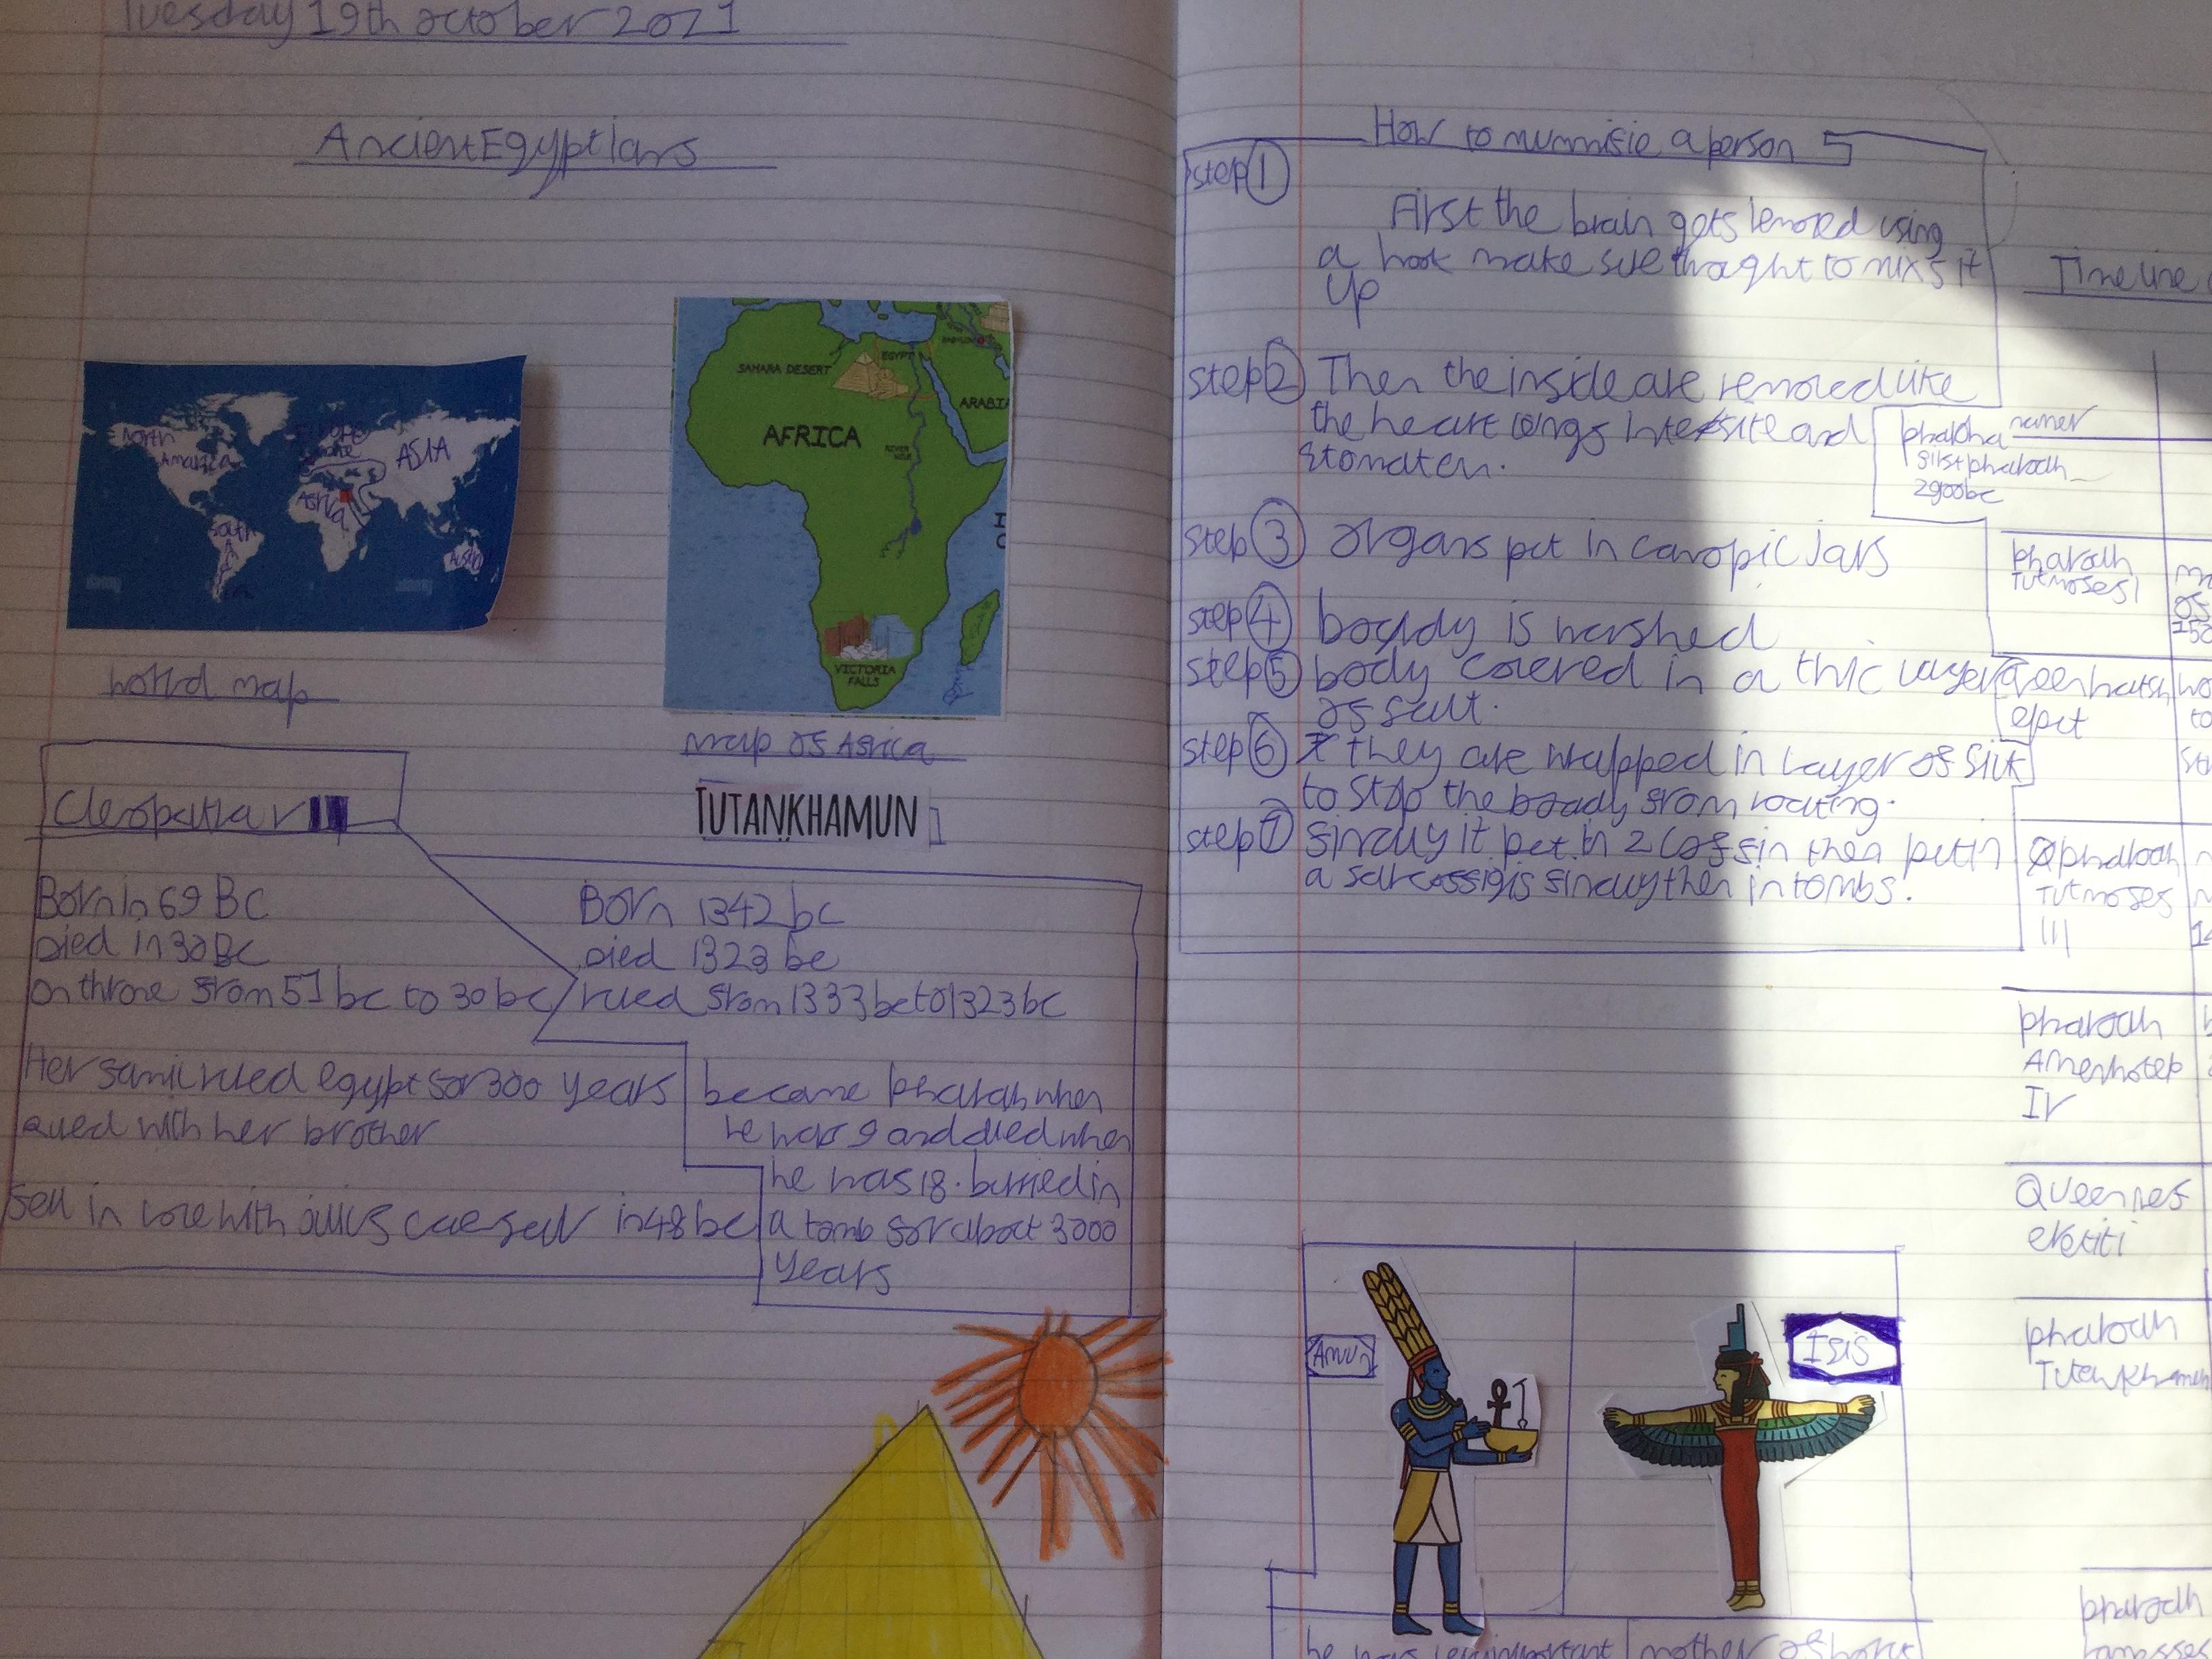 Tuesday 19th october 2021
Ancient Egyptians
North
Amarica
Europe
ASIA
Africa
South
alamy
alamy
world map
SAHARA DESERT
EGYPT
BABYLON
ARABI
AFRICA
RIVER
NILE
I
C
VICTORIA
FALLS
map of Africa
Cleopatra VII
Born in 69 BC
Died in 30 BC
on throne from 51 bc to 30 bc
Her famil ruled egypt for 300 years
Ruled with her brother
fell in love with Julius caesar in 48 bc
TUTANKHAMUN
Born 1342 bc
Died 1323 bc
ruled from 1333 bc to 1323 bc
became pharah when
he was 9 and died when
he was 18. burried in
a tomb for about 3000
years
How to mummifie a person
step 1
First the brain gets removed using
a hook make sure
up
step 2 Then the inside are removed like
the heart longs and
step 3 organs put in canopic Jars
step 4 is washed
step 5 body covered in a thic layer
of salt.
step 6 they are wrapped in layer of silk
to stop the from
step 7 finally it put in 2 coffin then put in
a finally then in tombs.
Timeline
narmer
first pharoah
2900bc
pharoah
Tutmoses I
Queen hatsh
eput
pharoah
Tutmoses
III
pharoah
Amenhotep
IV
Queen nef
ertiti
pharoah
Tutenkhamun
pharoah
Amun
Isis
he was important
mother of horus